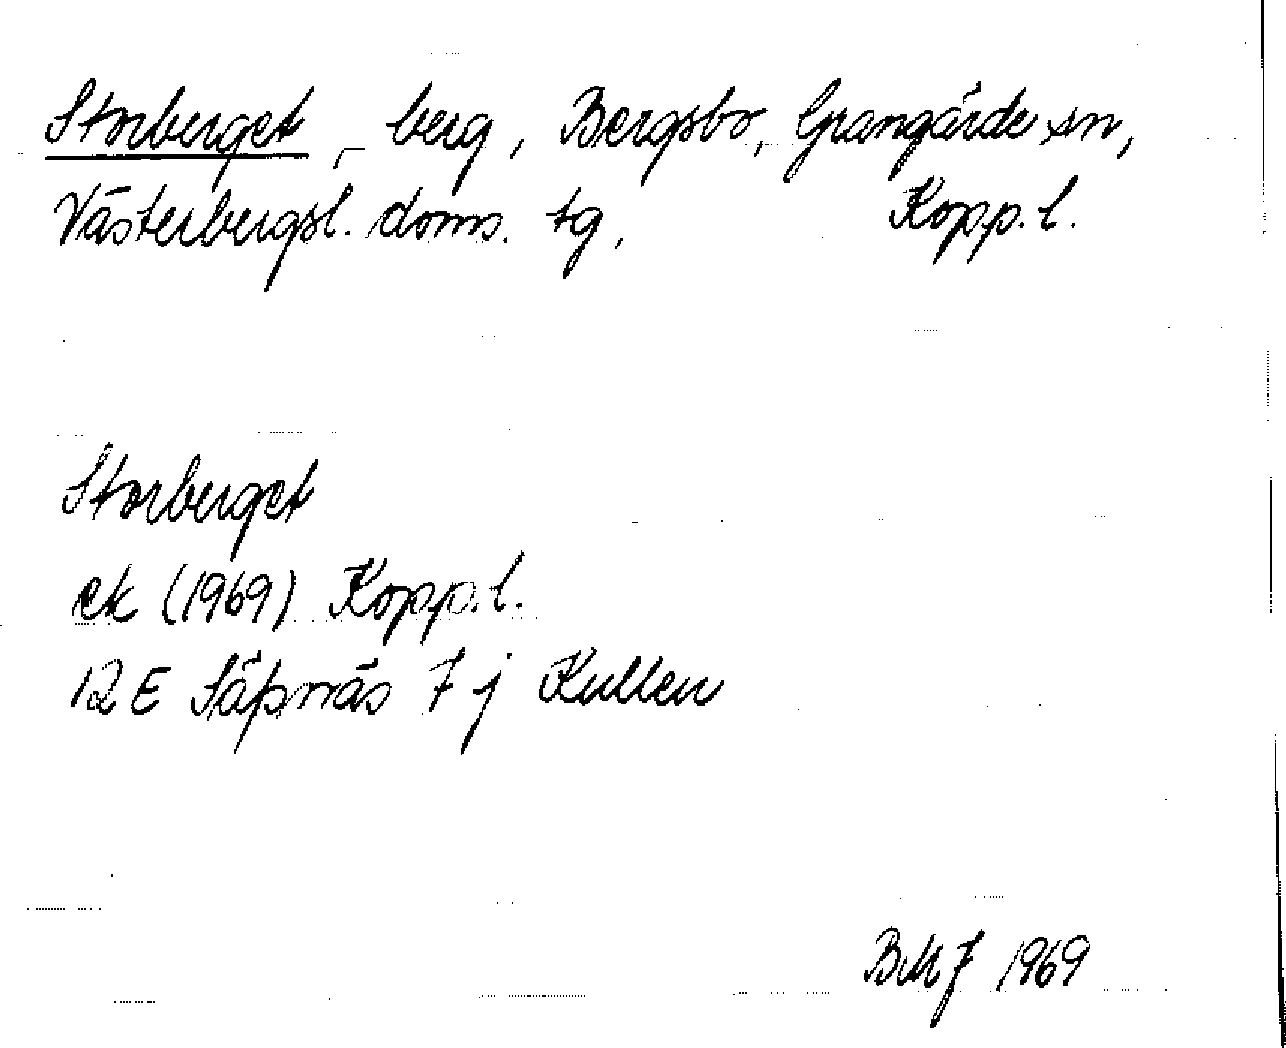 Storberget, berg, Bergsbo, Grangärde sn,
Västerbergsl. doms. tg, Kopp. l.
Storberget
ek (1969) Kopp. l.
12 E Säfsnäs 7 j Kullen
BMJ 1969